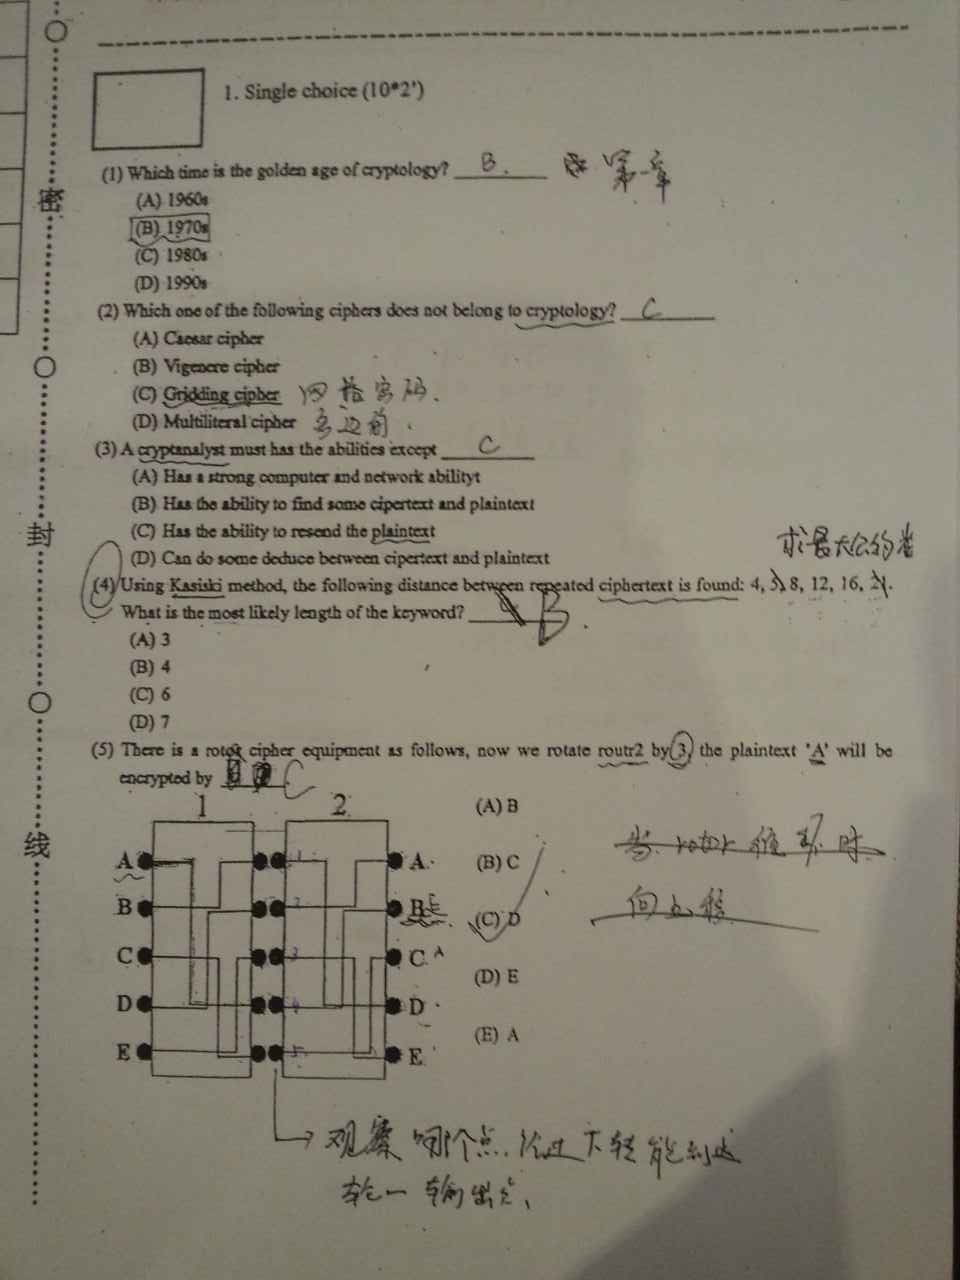 1. Single choice (10*2')
(1) Which time is the golden age of cryptology? B. 第一章
(A) 1960s
(B) 1970s
(C) 1980s
(D) 1990s
(2) Which one of the following ciphers does not belong to cryptology? C
(A) Caesar cipher
(B) Vigenere cipher
(C) Gridding cipher 网格密码.
(D) Multiliteral cipher
(3) A cryptanalyst must has the abilities except C
(A) Has a strong computer and network abilityt
(B) Has the ability to find some cipertext and plaintext
(C) Has the ability to resend the plaintext
(D) Can do some deduce between cipertext and plaintext
求最大公约数
(4) Using Kasiski method, the following distance between repeated ciphertext is found: 4, 5, 8, 12, 16, 21.
What is the most likely length of the keyword? B
(A) 3
(B) 4
(C) 6
(D) 7
(5) There is a rotor cipher equipment as follows, now we rotate routr2 by 3, the plaintext 'A' will be
encrypted by C
1 2
A 1 A
B 2 B E
C 3 C A
D 4 D
E 5 E
(A) B
(B) C
(C) D
(D) E
(E) A
当 rotor 时
向上移
观察哪个点 下转能到达
轮一输出点
密
封
线